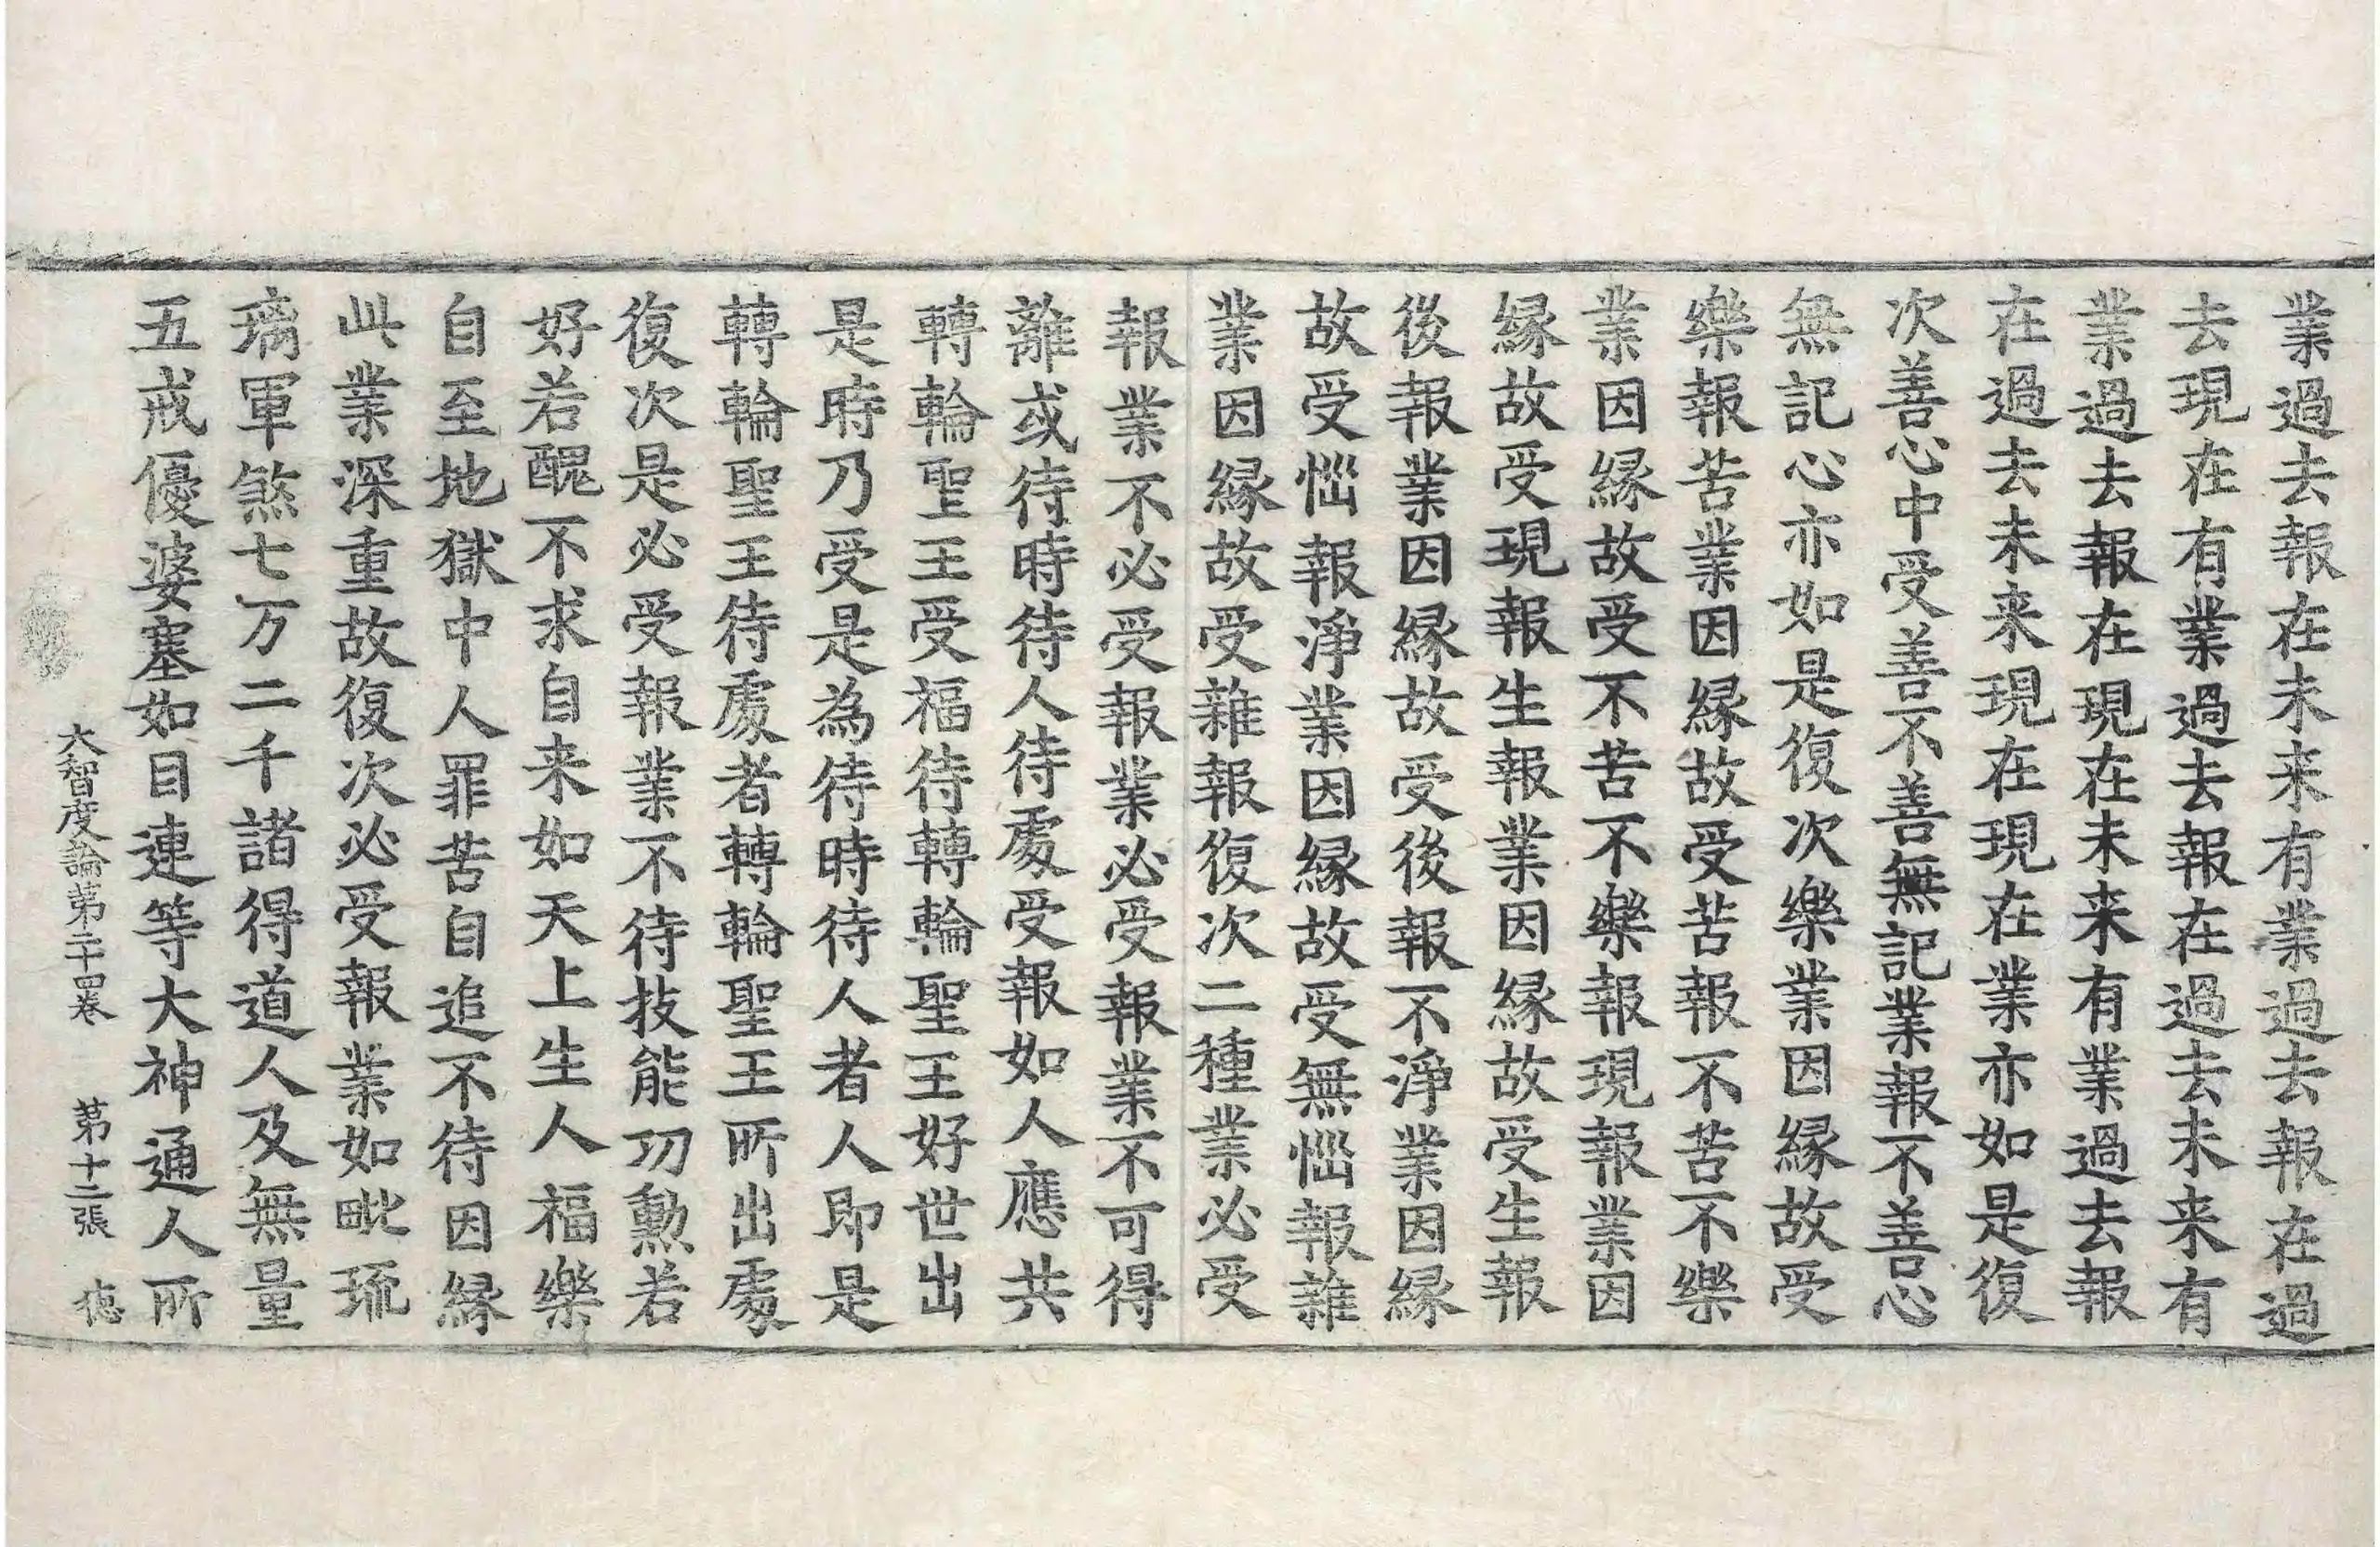 業過去報在未来有業過去報在過
去現在有業過去報在過去未来有
業過去報在現在未来有業過去報
在過去未来現在現在業亦如是復
次善心中受善不善無記業報不善心
無記心亦如是復次樂業因縁故受
樂報苦業因縁故受苦報不苦不樂
業因縁故受不苦不樂報現報業因
縁故受現報生報業因縁故受生報
後報業因縁故受後報不淨業因縁
故受惱報淨業因縁故受無惱報雜
業因縁故受雜報復次二種業必受
報業不必受報業必受報業不可得
離或待時待人待處受報如人應共
轉輪聖王受福待轉輪聖王好世出
是時乃受是為待時待人者人即是
轉輪聖王待處者轉輪聖王所出處
復次是必受報業不待技能功勲若
好若醜不求自来如天上生人福樂
自至地獄中人罪苦自追不待因縁
此業深重故復次必受報業如毗琉
璃軍煞七万二千諸得道人及無量
五戒優婆塞如目連等大神通人所
大智度論第二十四卷　第十二張　德